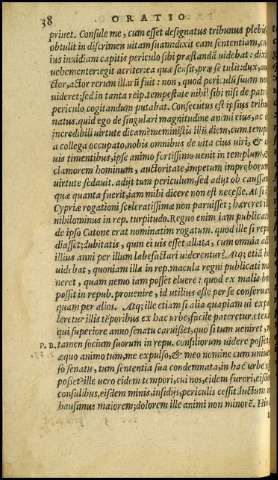 38 ORATIO
priuet. Consule me, cum esset designatus tribunus plebis
obtulit in discrimen uitam suam: dixit eam sententiam, cu
ius inuidiam capitis periculo sibi præstandã uidebat: dixit
uehementer: egit acriter: ea quæ sensit, præ se tulit: dux, au
ctor, actor rerum illarũ fuit: non, quod periculũ suum non
uideret: sed in tanta reip. tempestate nihil sibi nisi de patriæ
periculis cogitandum putabat. Consecutus est ipsius tribu
natus. quid ego de singulari magnitudine animi eius, ac de
incredibili uirtute dicam? meministis illũ diem, cum templo
a collega occupato, nobis omnibus de uita eius uiri, & ciuis
uis timentibus, ipse animo firmissimo uenit in templum, &
clamorem hominum, auctoritate, impetum improborum,
uirtute sedauit. adijt tum periculum, sed adijt ob caussam,
quæ quanta fuerit, iam mihi dicere non est necesse. At si isti
Cypriæ rogationi sceleratissimæ non paruisset; hæreret illa
nihilominus in rep. turpitudo. Regno enim iam publicato,
de ipso Catone erat nominatim rogatum. quod ille si repu
diasset; dubitatis, quin ei uis esset allata, cum omnia acta
illius anni per illum labefactari uiderentur? Atq; etiã hoc
uidebat, quoniam illa in rep. macula regni publicati ma
neret, quam nemo iam posset eluere: quod ex malis boni
possit in repub. prouenire, id utilius esse per se conseruari,
quam per alios. Atq; ille etiam si alia quapiam ui expel
leretur illis tẽporibus ex hac urbe; facile pateretur. etenim
qui superiore anno senatu caruisset, quo si tum ueniret, me
P. R. tamen socium suorum in repu. consiliorum uidere posset;
æquo animo tum, me expulso, & meo nomine cum uniuer
so senatu, tum sententia sua condemnata, in hac urbe esse
posset? ille uero eidem tempori, cui nos, eidem furori, eisdem
consulibus, eisdem minis, insidijs, periculis cessit. luctum nos
hausimus maiorem; dolorem ille animi non minorem. His